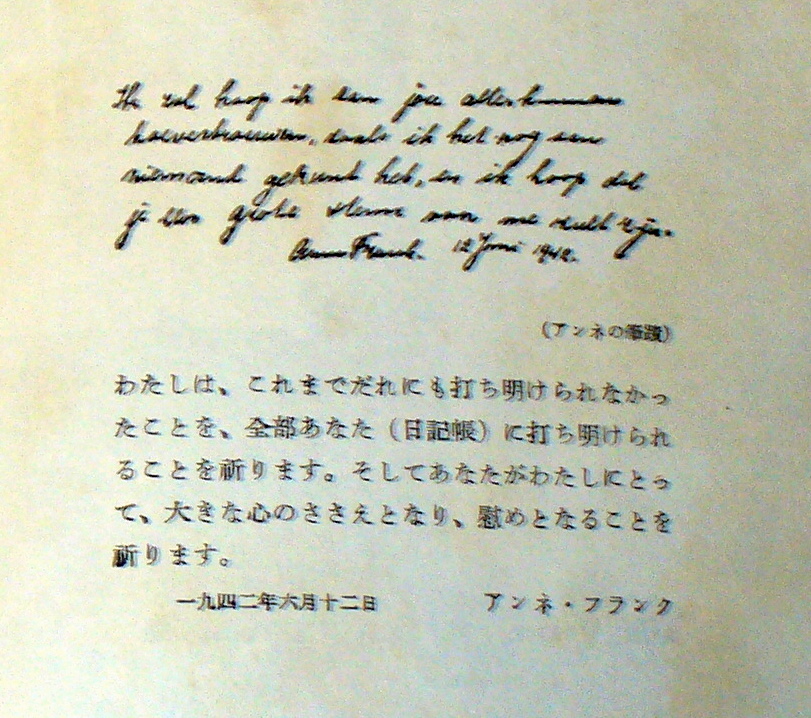 Ik zal hoop ik aan jou alles kunnen
toevertrouwen, zoals ik het nog aan
niemand gekund heb, en ik hoop dat
je een grote steun van me zult zijn.
Anne Frank. 12 Juni 1942.
(アンネの筆蹟)
わたしは、これまでだれにも打ち明けられなかっ
たことを、全部あなた（日記帳）に打ち明けられ
ることを祈ります。そしてあなたがわたしにとっ
て、大きな心のささえとなり、慰めとなることを
祈ります。
一九四二年六月十二日 アンネ・フランク